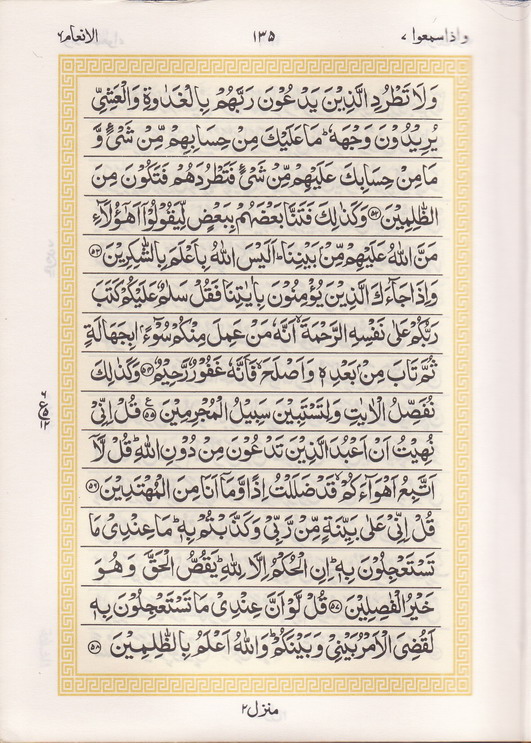 واذاسمعوا ٧
١٣٥
الانعام ٦
وَلَا تَطْرُدِ الَّذِيْنَ يَدْعُوْنَ رَبَّهُمْ بِالْغَدٰوةِ وَالْعَشِيِّ
يُرِيْدُوْنَ وَجْهَهٗ ؕ مَا عَلَيْكَ مِنْ حِسَابِهِمْ مِّنْ شَىْءٍ وَّ
مَا مِنْ حِسَابِكَ عَلَيْهِمْ مِّنْ شَىْءٍ فَتَطْرُدَهُمْ فَتَكُوْنَ مِنَ
الظّٰلِمِيْنَ ﴿۵۲﴾ وَكَذٰلِكَ فَتَنَّا بَعْضَهُمْ بِبَعْضٍ لِّيَقُوْلُوْۤا اَهٰۤؤُلَآءِ
مَنَّ اللّٰهُ عَلَيْهِمْ مِّنْۢ بَيْنِنَا ؕ اَلَيْسَ اللّٰهُ بِاَعْلَمَ بِالشّٰكِرِيْنَ ﴿۵۳﴾
وَاِذَا جَآءَكَ الَّذِيْنَ يُؤْمِنُوْنَ بِاٰيٰتِنَا فَقُلْ سَلٰمٌ عَلَيْكُمْ كَتَبَ
رَبُّكُمْ عَلٰى نَفْسِهِ الرَّحْمَةَ ۙ اَنَّهٗ مَنْ عَمِلَ مِنْكُمْ سُوْٓءًۢا بِجَهَالَةٍ
ثُمَّ تَابَ مِنْۢ بَعْدِهٖ وَاَصْلَحَ ۙ فَاَنَّهٗ غَفُوْرٌ رَّحِيْمٌ ﴿۵۴﴾ وَكَذٰلِكَ
نُفَصِّلُ الْاٰيٰتِ وَلِتَسْتَبِيْنَ سَبِيْلُ الْمُجْرِمِيْنَ ﴿۵۵﴾ ع قُلْ اِنِّيْ
نُهِيْتُ اَنْ اَعْبُدَ الَّذِيْنَ تَدْعُوْنَ مِنْ دُوْنِ اللّٰهِ ؕ قُلْ لَّاۤ
اَتَّبِعُ اَهْوَآءَكُمْ ۙ قَدْ ضَلَلْتُ اِذًا وَّمَاۤ اَنَا مِنَ الْمُهْتَدِيْنَ ﴿۵۶﴾
قُلْ اِنِّيْ عَلٰى بَيِّنَةٍ مِّنْ رَّبِّيْ وَكَذَّبْتُمْ بِهٖ ؕ مَا عِنْدِيْ مَا
تَسْتَعْجِلُوْنَ بِهٖ ؕ اِنِ الْحُكْمُ اِلَّا لِلّٰهِ ؕ يَقُصُّ الْحَقَّ وَهُوَ
خَيْرُ الْفٰصِلِيْنَ ﴿۵۷﴾ قُلْ لَّوْ اَنَّ عِنْدِيْ مَا تَسْتَعْجِلُوْنَ بِهٖ
لَقُضِيَ الْاَمْرُ بَيْنِيْ وَبَيْنَكُمْ ؕ وَاللّٰهُ اَعْلَمُ بِالظّٰلِمِيْنَ ﴿۵۸﴾
ع
۵
۱۲
منزل ٢